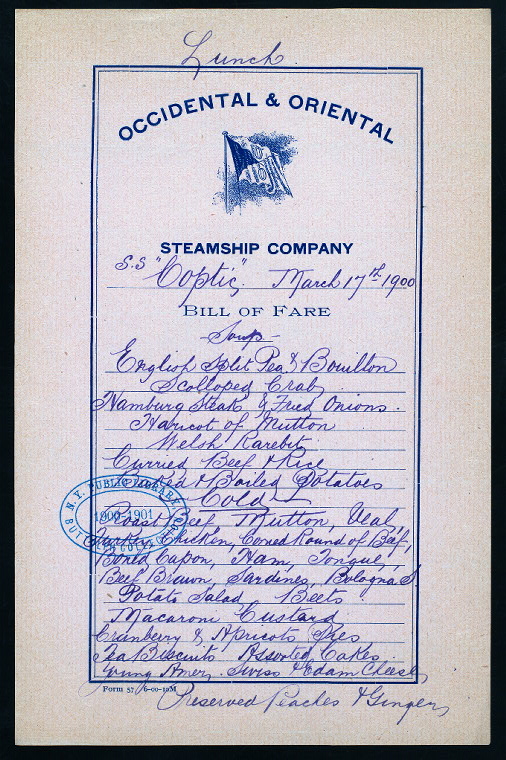 Lunch
OCCIDENTAL & ORIENTAL
STEAMSHIP COMPANY
S.S "Coptic", March 17th 1900
BILL OF FARE
Soup
English Split Pea & Bouillon
Scolloped Crab
Hamburg Steak & Fried Onions.
Haricot of Mutton
Welsh Rarebit
Curried Beef & Rice
Baked & Boiled Potatoes
Cold
Roast Beef, Mutton, Veal,
Turkey, Chicken, Corned Round of Beef,
Boned Capon, Ham, Tongue,
Beef Brawn, Sardines, Bologna S.
Potato Salad Beets
Macaroni Custard
Cranberry & Apricots Pies
Tea Biscuits Assorted Cakes.
Young Amer, Swiss & Edam Cheese
Form 57 6-00-10M
Preserved Peaches & Ginger,
N.Y. PUBLIC LIBRARY
1900-1901
BUTTOLPH COLLECTION